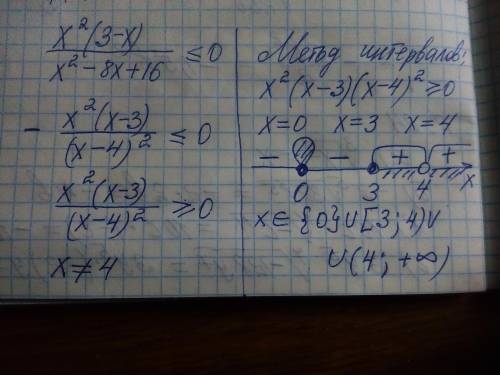 x²(3-x)
x²-8x+16 ≤ 0
- x²(x-3)
(x-4)² ≤ 0
x²(x-3)
(x-4)² ≥ 0
x ≠ 4
Метод интервалов:
x²(x-3)(x-4)² ≥ 0
x=0 x=3 x=4
- - + +
0 3 4 x
x ∈ {0} ∪ [3; 4) ∪
∪ (4; +∞)